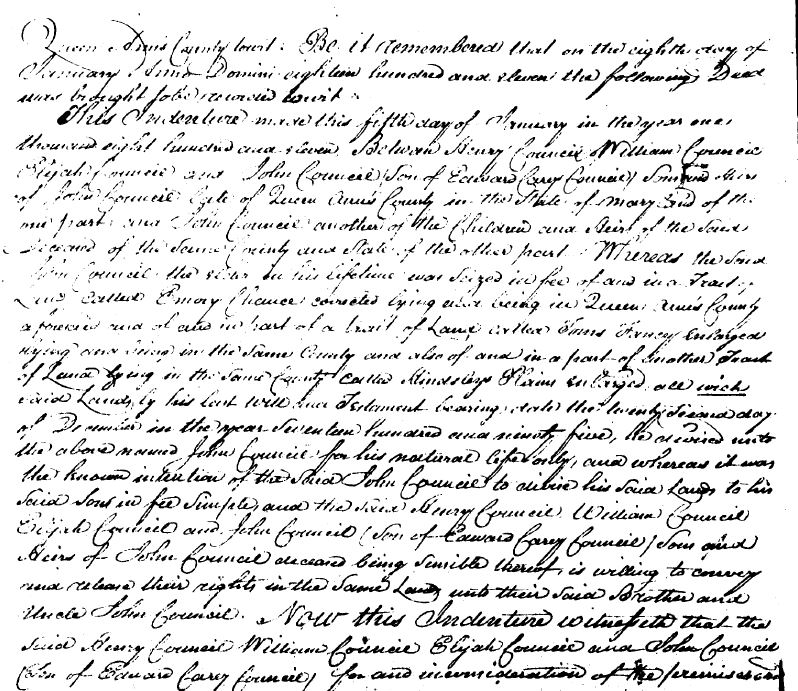 Queen Ann's County towit. Be it remembered that on the eighth day of
January Anno Domini eighteen hundred and eleven the following Deed
was brought to be recorded towit:
This Indenture made this fifth day of January in the year one
thousand eight hundred and eleven Between Henry Council William Council
Elijah Council and John Council (Son of Edward Carey Council) Sons and Heirs
of John Council late of Queen Ann's County in the State of Maryland of the
one part and John Council another of the Children and Heirs of the said
deceased of the Same County and State of the other part. Whereas the said
John Council the elder in his lifetime was seized in fee of and in a Tract
Land called Emory Chance corrected lying and being in Queen Ann's County
aforesaid and of and in part of a tract of Land called Toms Fancy Enlarged
lying and being in the Same County and also of and in a part of another Tract
of Land lying in the Same County called Hindsleys Plains enlarged all wich
said Lands by his last Will and Testament bearing date the twenty Second day
of December in the year Seventeen hundred and ninety five, he devised unto
the above named John Council for his natural life only, and whereas it was
the known intention of the said John Council to devise his said Lands to his
said Sons in fee Simple, and the said Henry Council William Council
Elijah Council and John Council (Son of Edward Carey Council) Sons and
Heirs of John Council deceased being Sensible thereof, is willing to convey
and release their rights in the Same Lands unto their said Brother and
Uncle John Council. Now this Indenture witnesseth that the
said Henry Council William Council Elijah Council and John Council
(Son of Edward Carey Council) for and in consideration of the premises and